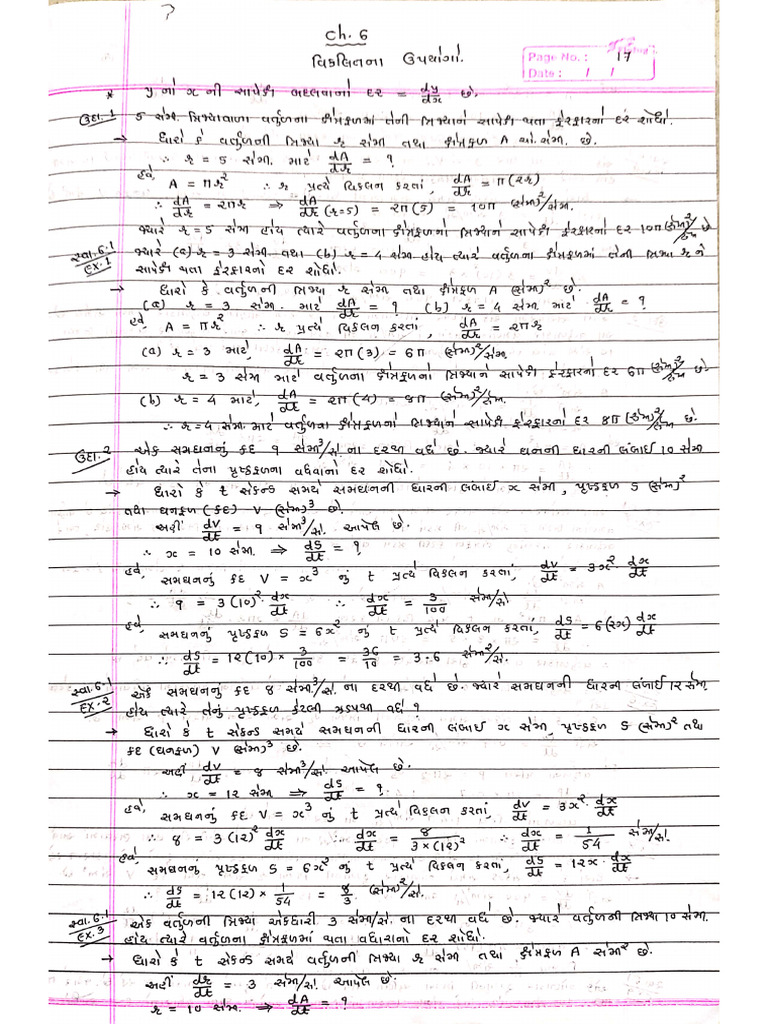 ?
Ch. 6
વિકલિતના ઉપયોગો.
Page No.: 17
Date: / /
* y નો x ની સાપેક્ષે બદલવાનો દર = dy/dx છે.
ઉદા.1 5 સેમી. ત્રિજ્યાવાળા વર્તુળના ક્ષેત્રફળમાં તેની ત્રિજ્યાને સાપેક્ષ થતા ફેરફારનો દર શોધો.
→ ધારો કે વર્તુળની ત્રિજ્યા r સેમી તથા ક્ષેત્રફળ A ચો.સેમી. છે.
∴ r = 5 સેમી. માટે dA/dr = ?
હવે, A = πr² ∴ r પ્રત્યે વિકલન કરતાં, dA/dr = π(2r)
∴ dA/dr = 2πr ⇒ dA/dr (r=5) = 2π(5) = 10π (સેમી)²/સેમી.
જ્યારે r = 5 સેમી હોય ત્યારે વર્તુળના ક્ષેત્રફળનો ત્રિજ્યાને સાપેક્ષ ફેરફારનો દર 10π (સેમી)²/સેમી છે
સ્વા.6.1 Ex.1 જ્યારે (a) r = 3 સેમી તથા (b) r = 4 સેમી હોય ત્યારે વર્તુળના ક્ષેત્રફળમાં તેની ત્રિજ્યા r ને
સાપેક્ષ થતા ફેરફારનો દર શોધો.
→ ધારો કે વર્તુળની ત્રિજ્યા r સેમી તથા ક્ષેત્રફળ A (સેમી)² છે.
(a) r = 3 સેમી. માટે dA/dr = ? (b) r = 4 સેમી માટે dA/dr = ?
હવે, A = πr² ∴ r પ્રત્યે વિકલન કરતાં, dA/dr = 2πr
(a) r = 3 માટે dA/dr = 2π(3) = 6π (સેમી)²/સેમી
r = 3 સેમી માટે વર્તુળના ક્ષેત્રફળનો ત્રિજ્યાને સાપેક્ષ ફેરફારનો દર 6π (સેમી)²/સેમી છે.
(b) r = 4 માટે, dA/dr = 2π(4) = 8π (સેમી)²/સેમી.
∴ r = 4 સેમી. માટે વર્તુળના ક્ષેત્રફળનો ત્રિજ્યાને સાપેક્ષ ફેરફારનો દર 8π (સેમી)²/સેમી છે.
ઉદા.2 એક સમઘનનું કદ 9 સેમી³/સે. ના દરથી વધે છે. જ્યારે ઘનની ધારની લંબાઈ 10 સેમી
હોય ત્યારે તેના પૃષ્ઠફળના વધવાનો દર શોધો.
→ ધારો કે t સેકન્ડ સમયે સમઘનની ધારની લંબાઈ x સેમી, પૃષ્ઠફળ S (સેમી)²
તથા ઘનફળ (કદ) V (સેમી)³ છે.
અહીં dv/dt = 9 સેમી³/સે. આપેલ છે.
∴ x = 10 સેમી. ⇒ ds/dt = ?
હવે, સમઘનનું કદ V = x³ નું t પ્રત્યે વિકલન કરતાં, dv/dt = 3x² · dx/dt
∴ 9 = 3(10)² · dx/dt ∴ dx/dt = 3/100 સેમી/સે
હવે, સમઘનનું પૃષ્ઠફળ S = 6x² નું t પ્રત્યે વિકલન કરતાં, ds/dt = 6(2x) dx/dt
∴ ds/dt = 12(10) × 3/100 = 36/10 = 3.6 સેમી²/સે.
સ્વા.6.1 Ex.2 એક સમઘનનું કદ 8 સેમી³/સે. ના દરથી વધે છે. જ્યારે સમઘનની ધારની લંબાઈ 12 સેમી.
હોય ત્યારે તેનું પૃષ્ઠફળ કેટલી ઝડપથી વધે ?
→ ધારો કે t સેકન્ડ સમયે સમઘનની ધારની લંબાઈ x સેમી, પૃષ્ઠફળ S (સેમી)² તથા
કદ (ઘનફળ) V (સેમી)³ છે.
અહીં dv/dt = 8 સેમી³/સે. આપેલ છે.
∴ x = 12 સેમી ⇒ ds/dt = ?
હવે, સમઘનનું કદ V = x³ નું t પ્રત્યે વિકલન કરતાં, dv/dt = 3x² · dx/dt
∴ 8 = 3(12)² dx/dt ∴ dx/dt = 8/3×(12)² ∴ dx/dt = 1/54 સેમી/સે.
હવે, સમઘનનું પૃષ્ઠફળ S = 6x² નું t પ્રત્યે વિકલન કરતાં, ds/dt = 12x · dx/dt
∴ ds/dt = 12(12) × 1/54 = 8/3 (સેમી)²/સે.
સ્વા.6.1 Ex.3 એક વર્તુળની ત્રિજ્યા એકધારી 3 સેમી/સે. ના દરથી વધે છે. જ્યારે વર્તુળની ત્રિજ્યા 10 સેમી.
હોય ત્યારે વર્તુળના ક્ષેત્રફળમાં થતા વધારાનો દર શોધો.
→ ધારો કે t સેકન્ડ સમયે વર્તુળની ત્રિજ્યા r સેમી તથા ક્ષેત્રફળ A સેમી² છે.
અહીં dr/dt = 3 સેમી/સે. આપેલ છે.
r = 10 સેમી. ⇒ dA/dt = ?